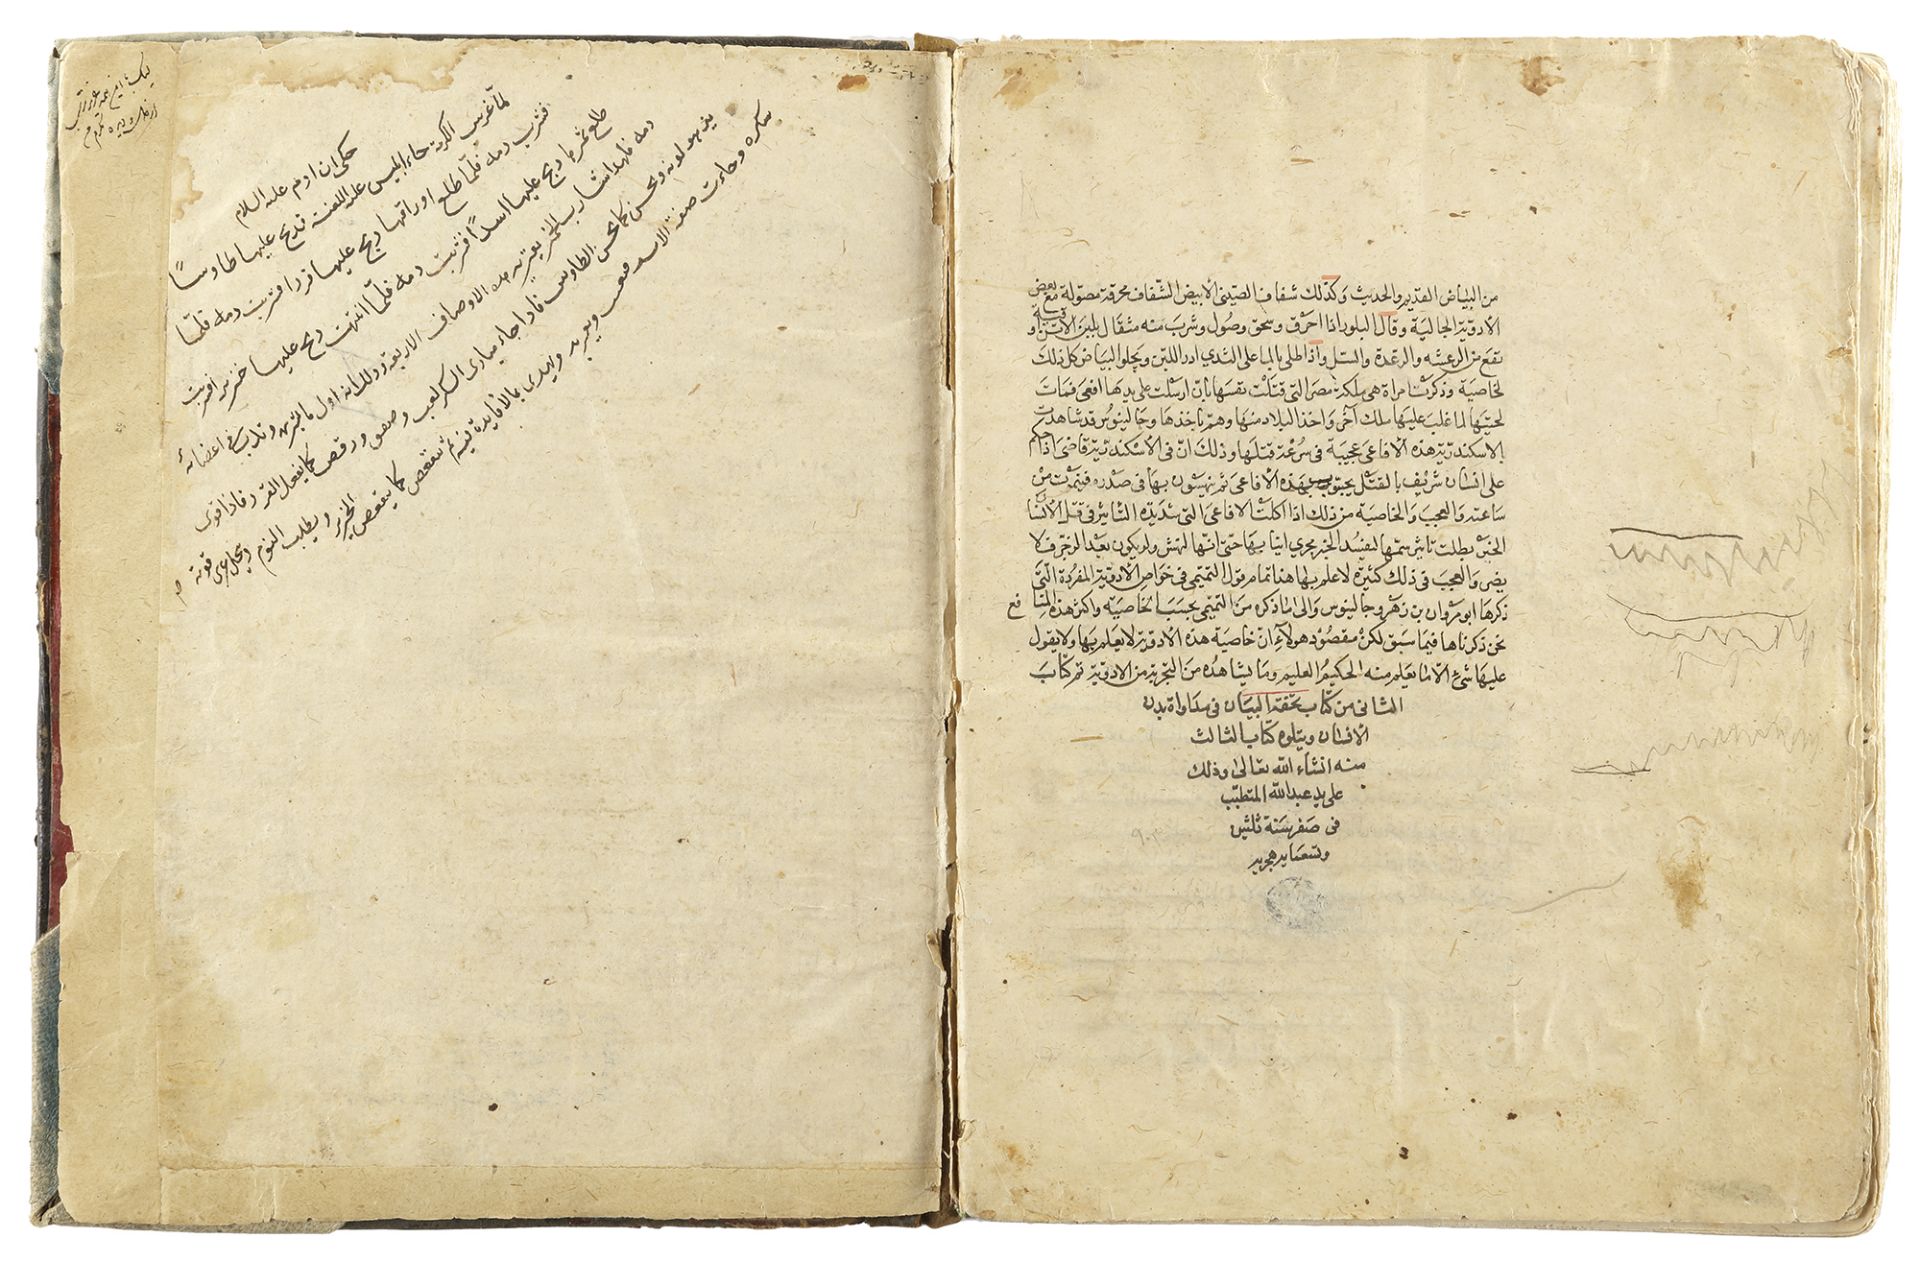 من البياض القديم والحديث وكذلك شفاف الصينى الابيض الشفاف محرقة مصولة مع بعض
الأدوية الجالية وقال البلور اذا احرق وسحق وصول وشرب منه مثقال بلبن الاتن
نفع من الرعشه والرعدة والسل واذا طلى بالما على الثدي ادر اللبن ويجلو البياض كل ذلك
لخاصية وذكرت امراة هى ملكة مصر التى قتلت نفسها بان ارسلت على يدها افعى فماتت
لحينها لما غلب عليها ملك آخر واخذ البلاد منها وهم ياخذها وجالينوس قد شاهدت
بالاسكندرية هذه الأفاعى عجيبة فى سرعة قتلها وذلك ان فى الأسكندرية قاضى اذا حكم
على انسان شريف بالقتل يجيئون بهذه الأفاعى ثم ينهشون بها فى صدره فيموت من
ساعته والعجب والخاصية من ذلك اذا اكلت الافاعى التى شديدة التاثير فى قتل الأنسان
الخبز بطلت تاثير سمها ليفسد الخبز مجرى انيابها حتى انها لنهش ولم يكون بعد الزجر ف لا
يضر والعجب فى ذلك كثيرة لا علم بها هنا تمام قول التميمى فى خواص الأدوية المفردة التى
ذكرها ابو مروان بن زهر وجالينوس والى اما ذكره من التميمى بحسب الخاصية واكثر هذه المنافع
نحن ذكرناها فيما سبق لكن مقصود هولاء ان خاصية هذه الأدوية لا يعلم بها ولا يقول
عليها شئ الا ما يعلم منه الحكيم العليم وما يشاهده من التجربة من الادوية تم كتاب
الثانى من كتاب تحفة البيان فى مداواة بدن
الأنسان ويتلوه كتاب الثالث
منه انشاء الله تعالى وذلك
على يد عبدالله المتطبب
فى صفر سنة ثلثين
وتسعمايه هجريه
حكى ان ادم عليه السلام
لما غرس الكرمة جاء ابليس عليه اللعنة فذبح عليها طاوسًا
فشرب دمه فلمّا طلع اوراقها ذبح عليها قردا فشربت دمه فلمّا
طلع ثمرها ذبح عليها اسدًا فشربت دمه فلمّا انتهت ذبح عليها خنزيرا فشربت
دمه فلهذا شارب الخمر يعتريه هذه الاوصاف الاربعة وذلك انه اول ما يشربه وتدب فى اعضائه
يزهو لونه ويحسن كما يحسن الطاوس فاذا جاء مبادى السكر لعب وصفق ورقص كما يفعل القرد فاذا قوى
سكره وجاءت صفة الاسد فيعبث ويعربد ويهذى بما لا فايدة فيه ثم يتقعص كما يتقعص الخنزير ويطلب النوم وينحل عرى قوته